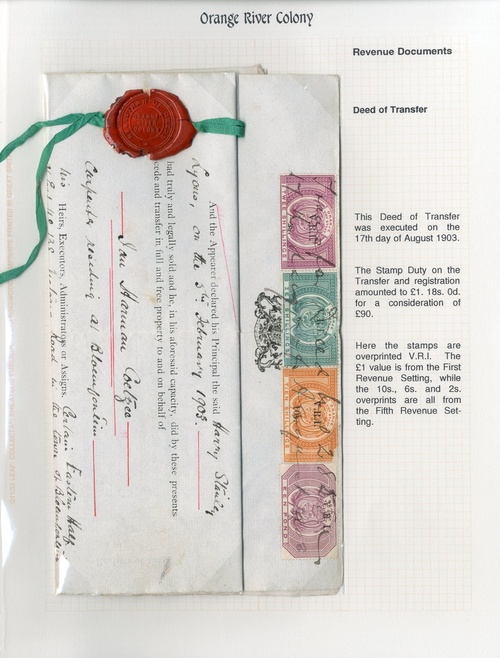 Orange River Colony
Revenue Documents
Deed of Transfer
This Deed of Transfer
was executed on the
17th day of August 1903.
The Stamp Duty on the
Transfer and registration
amounted to £1. 18s. 0d.
for a consideration of
£90.
Here the stamps are
overprinted V.R.I. The
£1 value is from the First
Revenue Setting, while
the 10s., 6s. and 2s.
overprints are all from
the Fifth Revenue Set-
ting.
And the Appearer declared his Principal the said Harry Stanley
Lyons, on the 5th February 1903.
had truly and legally sold and he, in his aforesaid capacity, did by these presents
cede and transfer in full and free property to and on behalf of
Jan Harman Coetzee
Carpenter residing at Bloemfontein
his Heirs, Executors, Administrators or Assigns, Certain Eastern Half
Road in the town of Bloemfontein